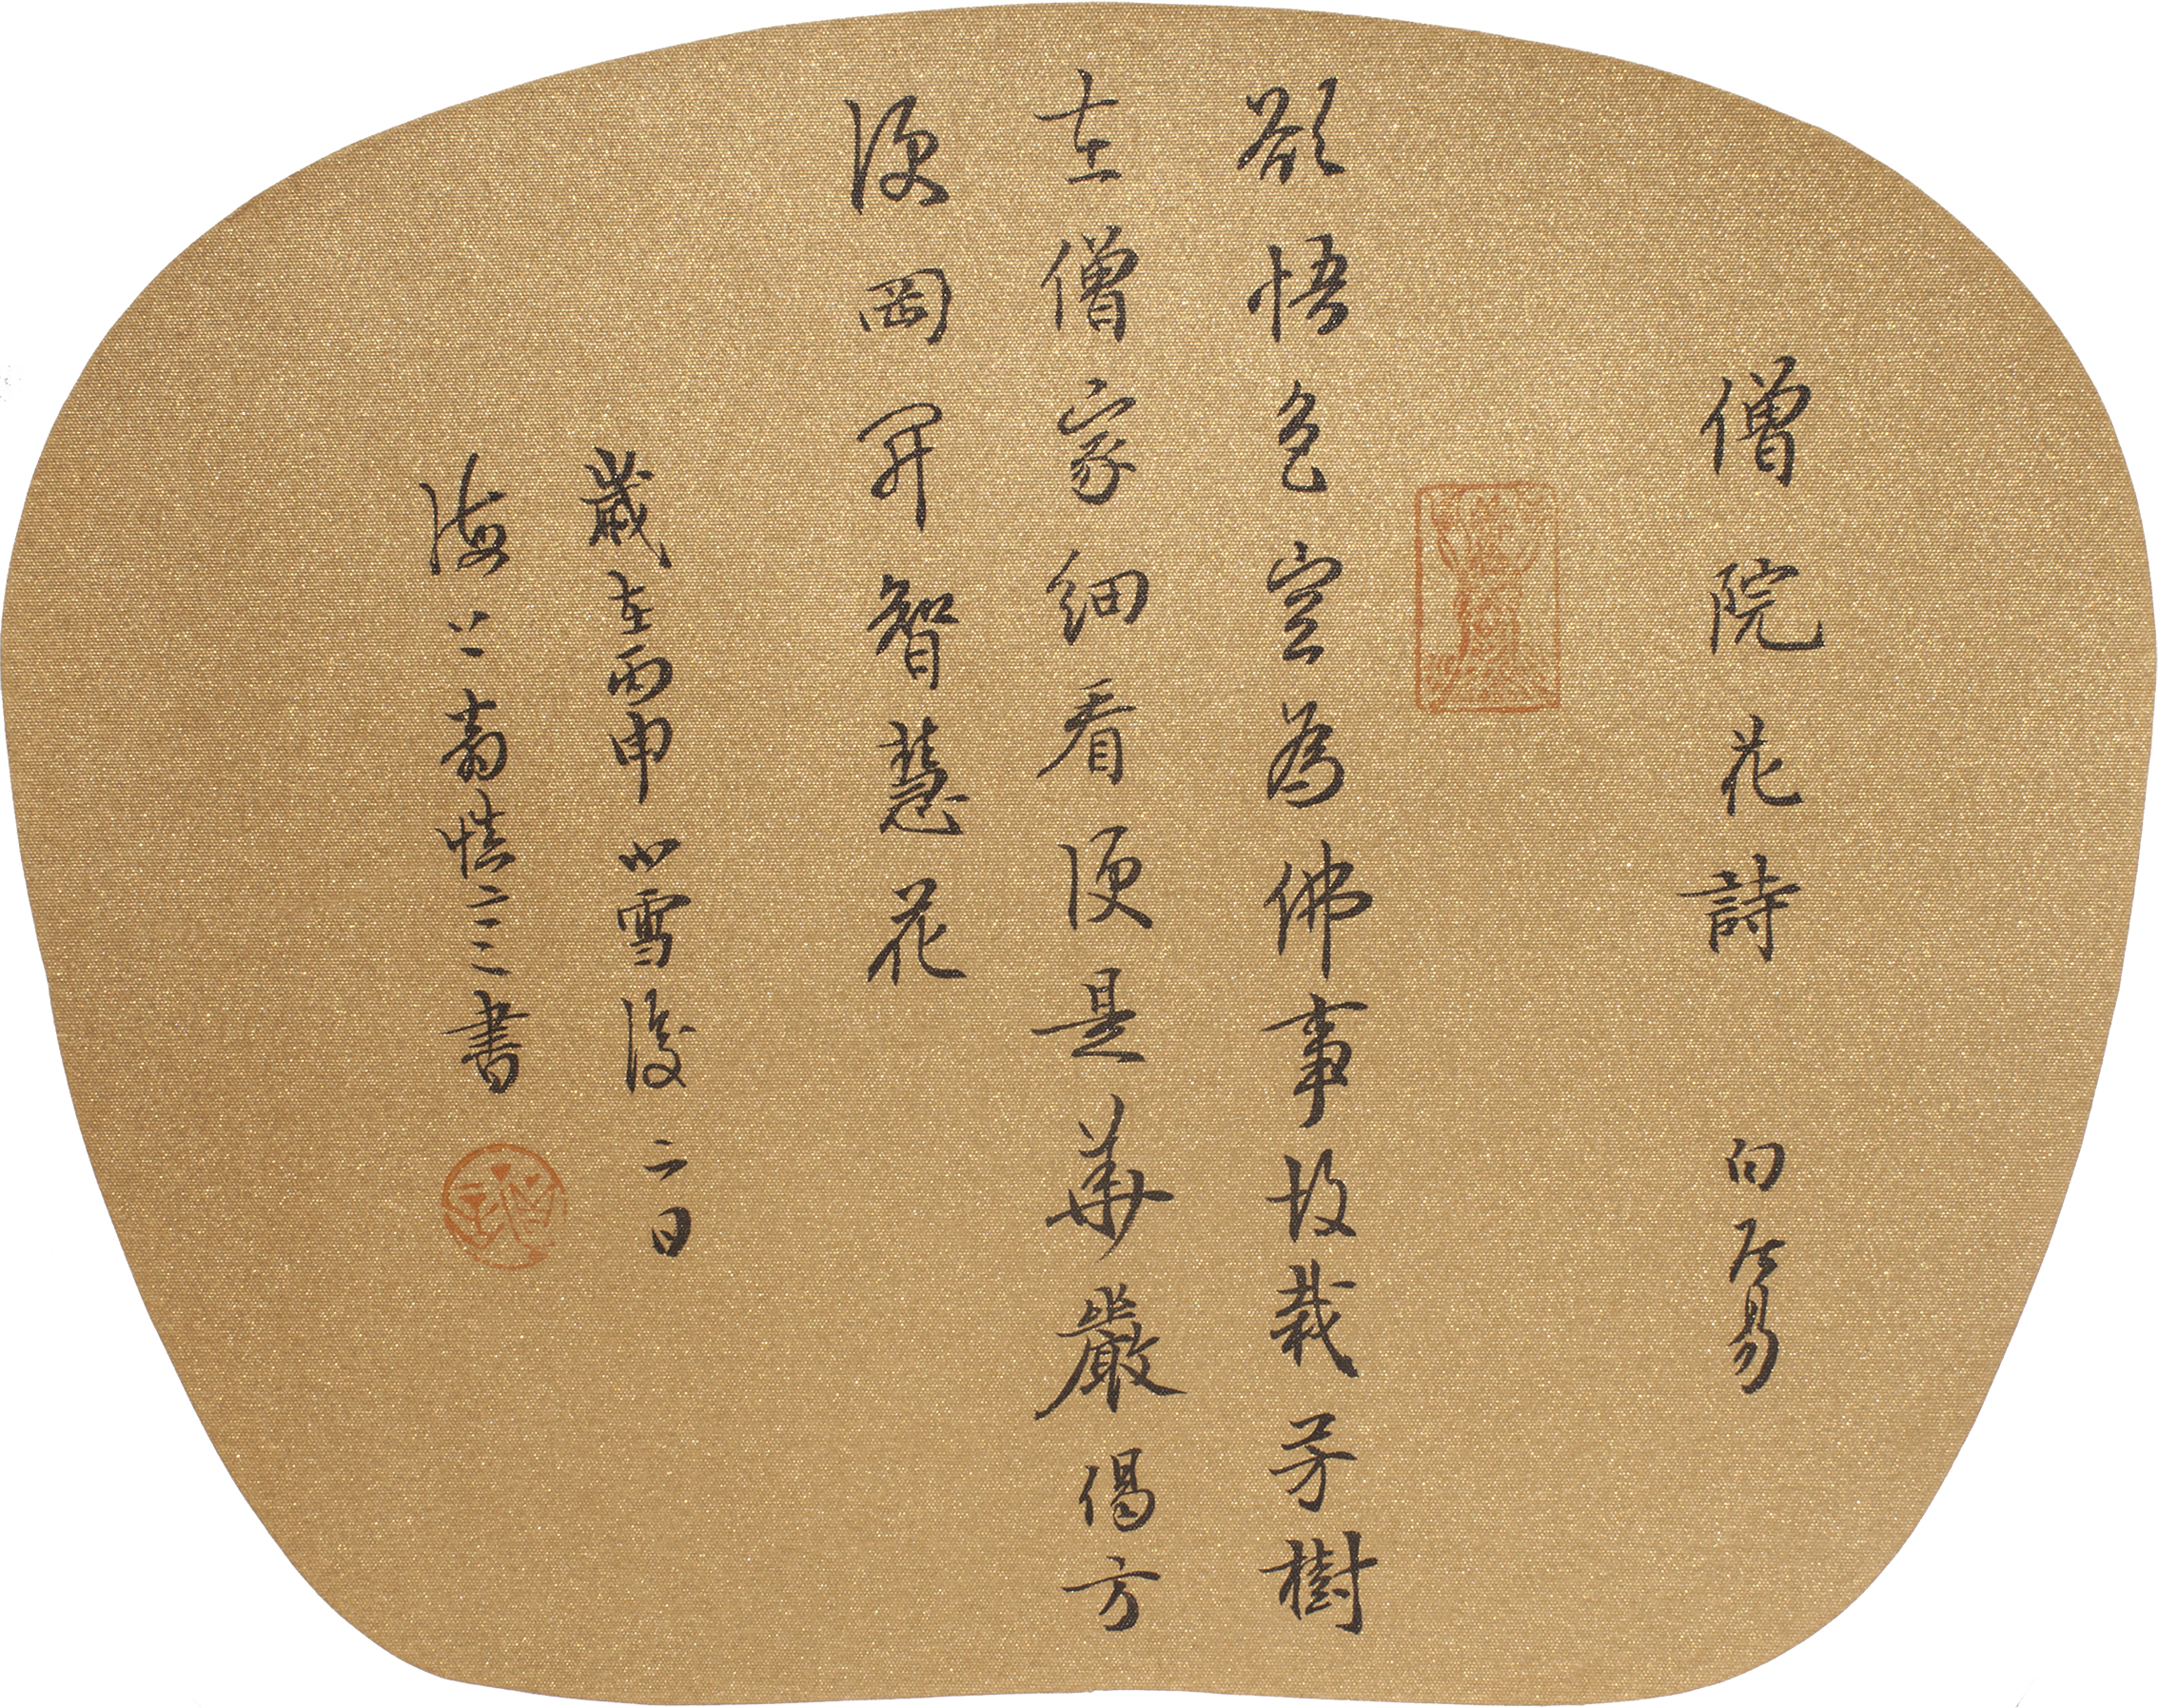 僧院花詩 白居易
欲悟色空為佛事故栽芳樹
在僧家細看便是華嚴偈方
便風開智慧花
歲在丙申小雪後二日
海上翁慎書